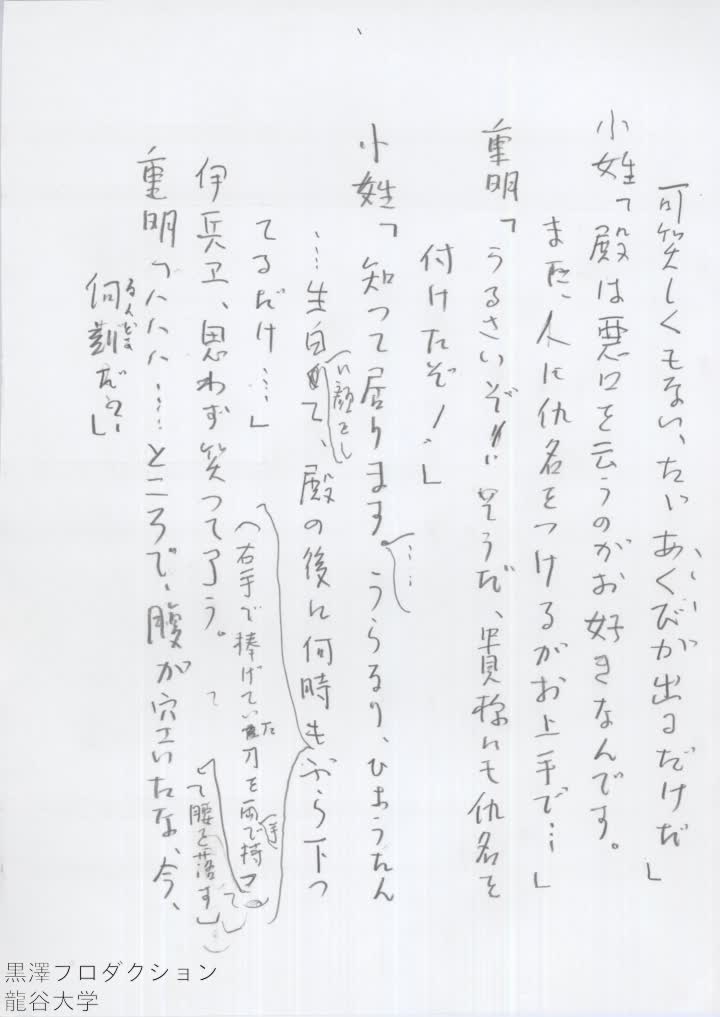 可笑しくもない、たゞあくびが出るだけだ」
小姓「殿は悪口を云うのがお好きなんです。
また、人に仇名をつけるがお上手で…」
重明「うるさいぞ！そうだ、貴様にも仇名を
付けたぞ！」
小姓「知って居ります。……うらなり、ひょうたん
…生白い顔をして、殿の後に何時もぶら下っ
てるだけ…」
（右手で捧げていた刀を両手で持って
て腰を落す）
伊兵ヱ、思わず笑って了う。
重明「ハハハ……ところで、腹が空いたな、今、
何刻だ？」
なんどき
黒澤プロダクション
龍谷大学